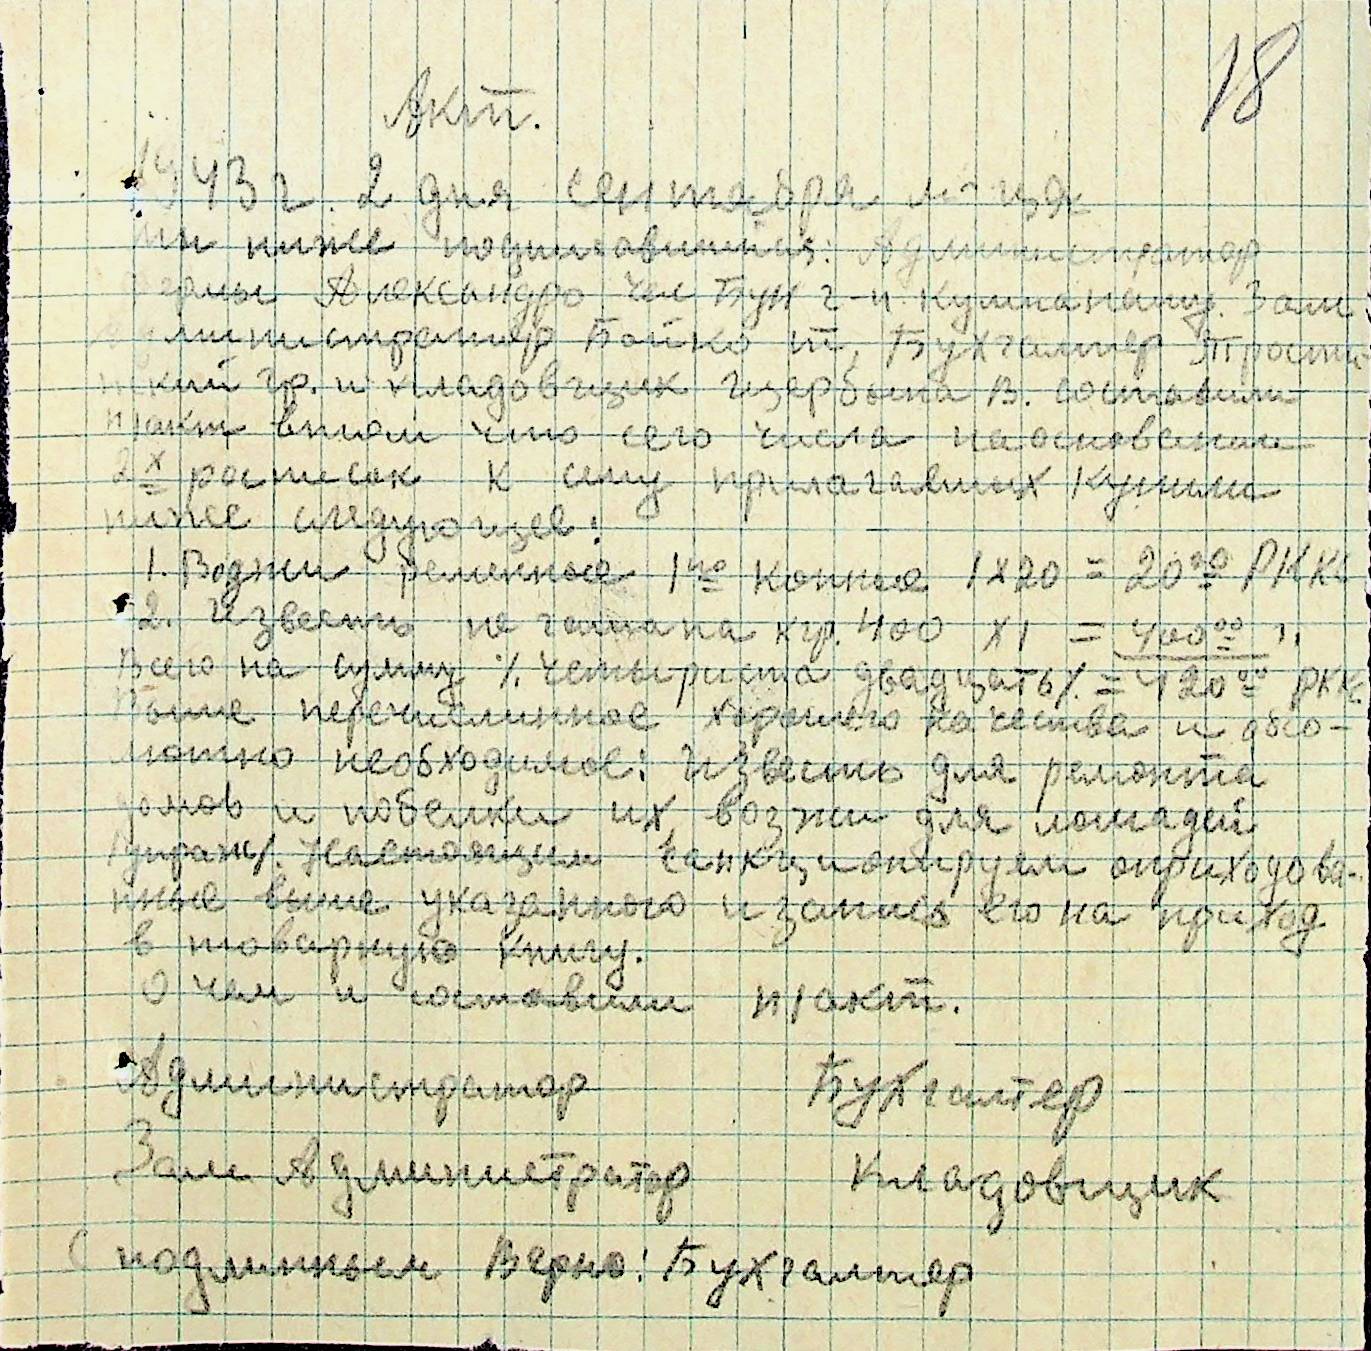 18
Акт.
1943 г. 2 дня сентября м-ца
мы ниже подписавшиися: Администратор
фермы Александро Чел Бун г-н Кумпанашу. Зам
администратор Бойко т, Бухгалтер Трости
нский гр. и кладовщик Щербина В. составили
н/акт втом что сего числа наосновении
2х росписок к сему прилагаемых купили
ниже следующее:
1. Возжи ременные 1но конные 1х20 = 20 00 РККС
2. Известь не гашана кгр. 400 х1 = 400 00 "
Всего на сумму % четыриста двадцать% = 420 00 РКК
Выше перечислинное хорошего качества и обсо-
лютно необходимое: Известь для ремонта
домов и побелки их, возжи для лошадей
/упраж/. Настоящим санкционируем оприходова-
ные выше указанного и запись его на приход
в товарную книгу.
О чем и составили н/акт.
Администратор Бухгалтер
Зам Администратор Кладовщик
С подлинным Верно: Бухгалтер